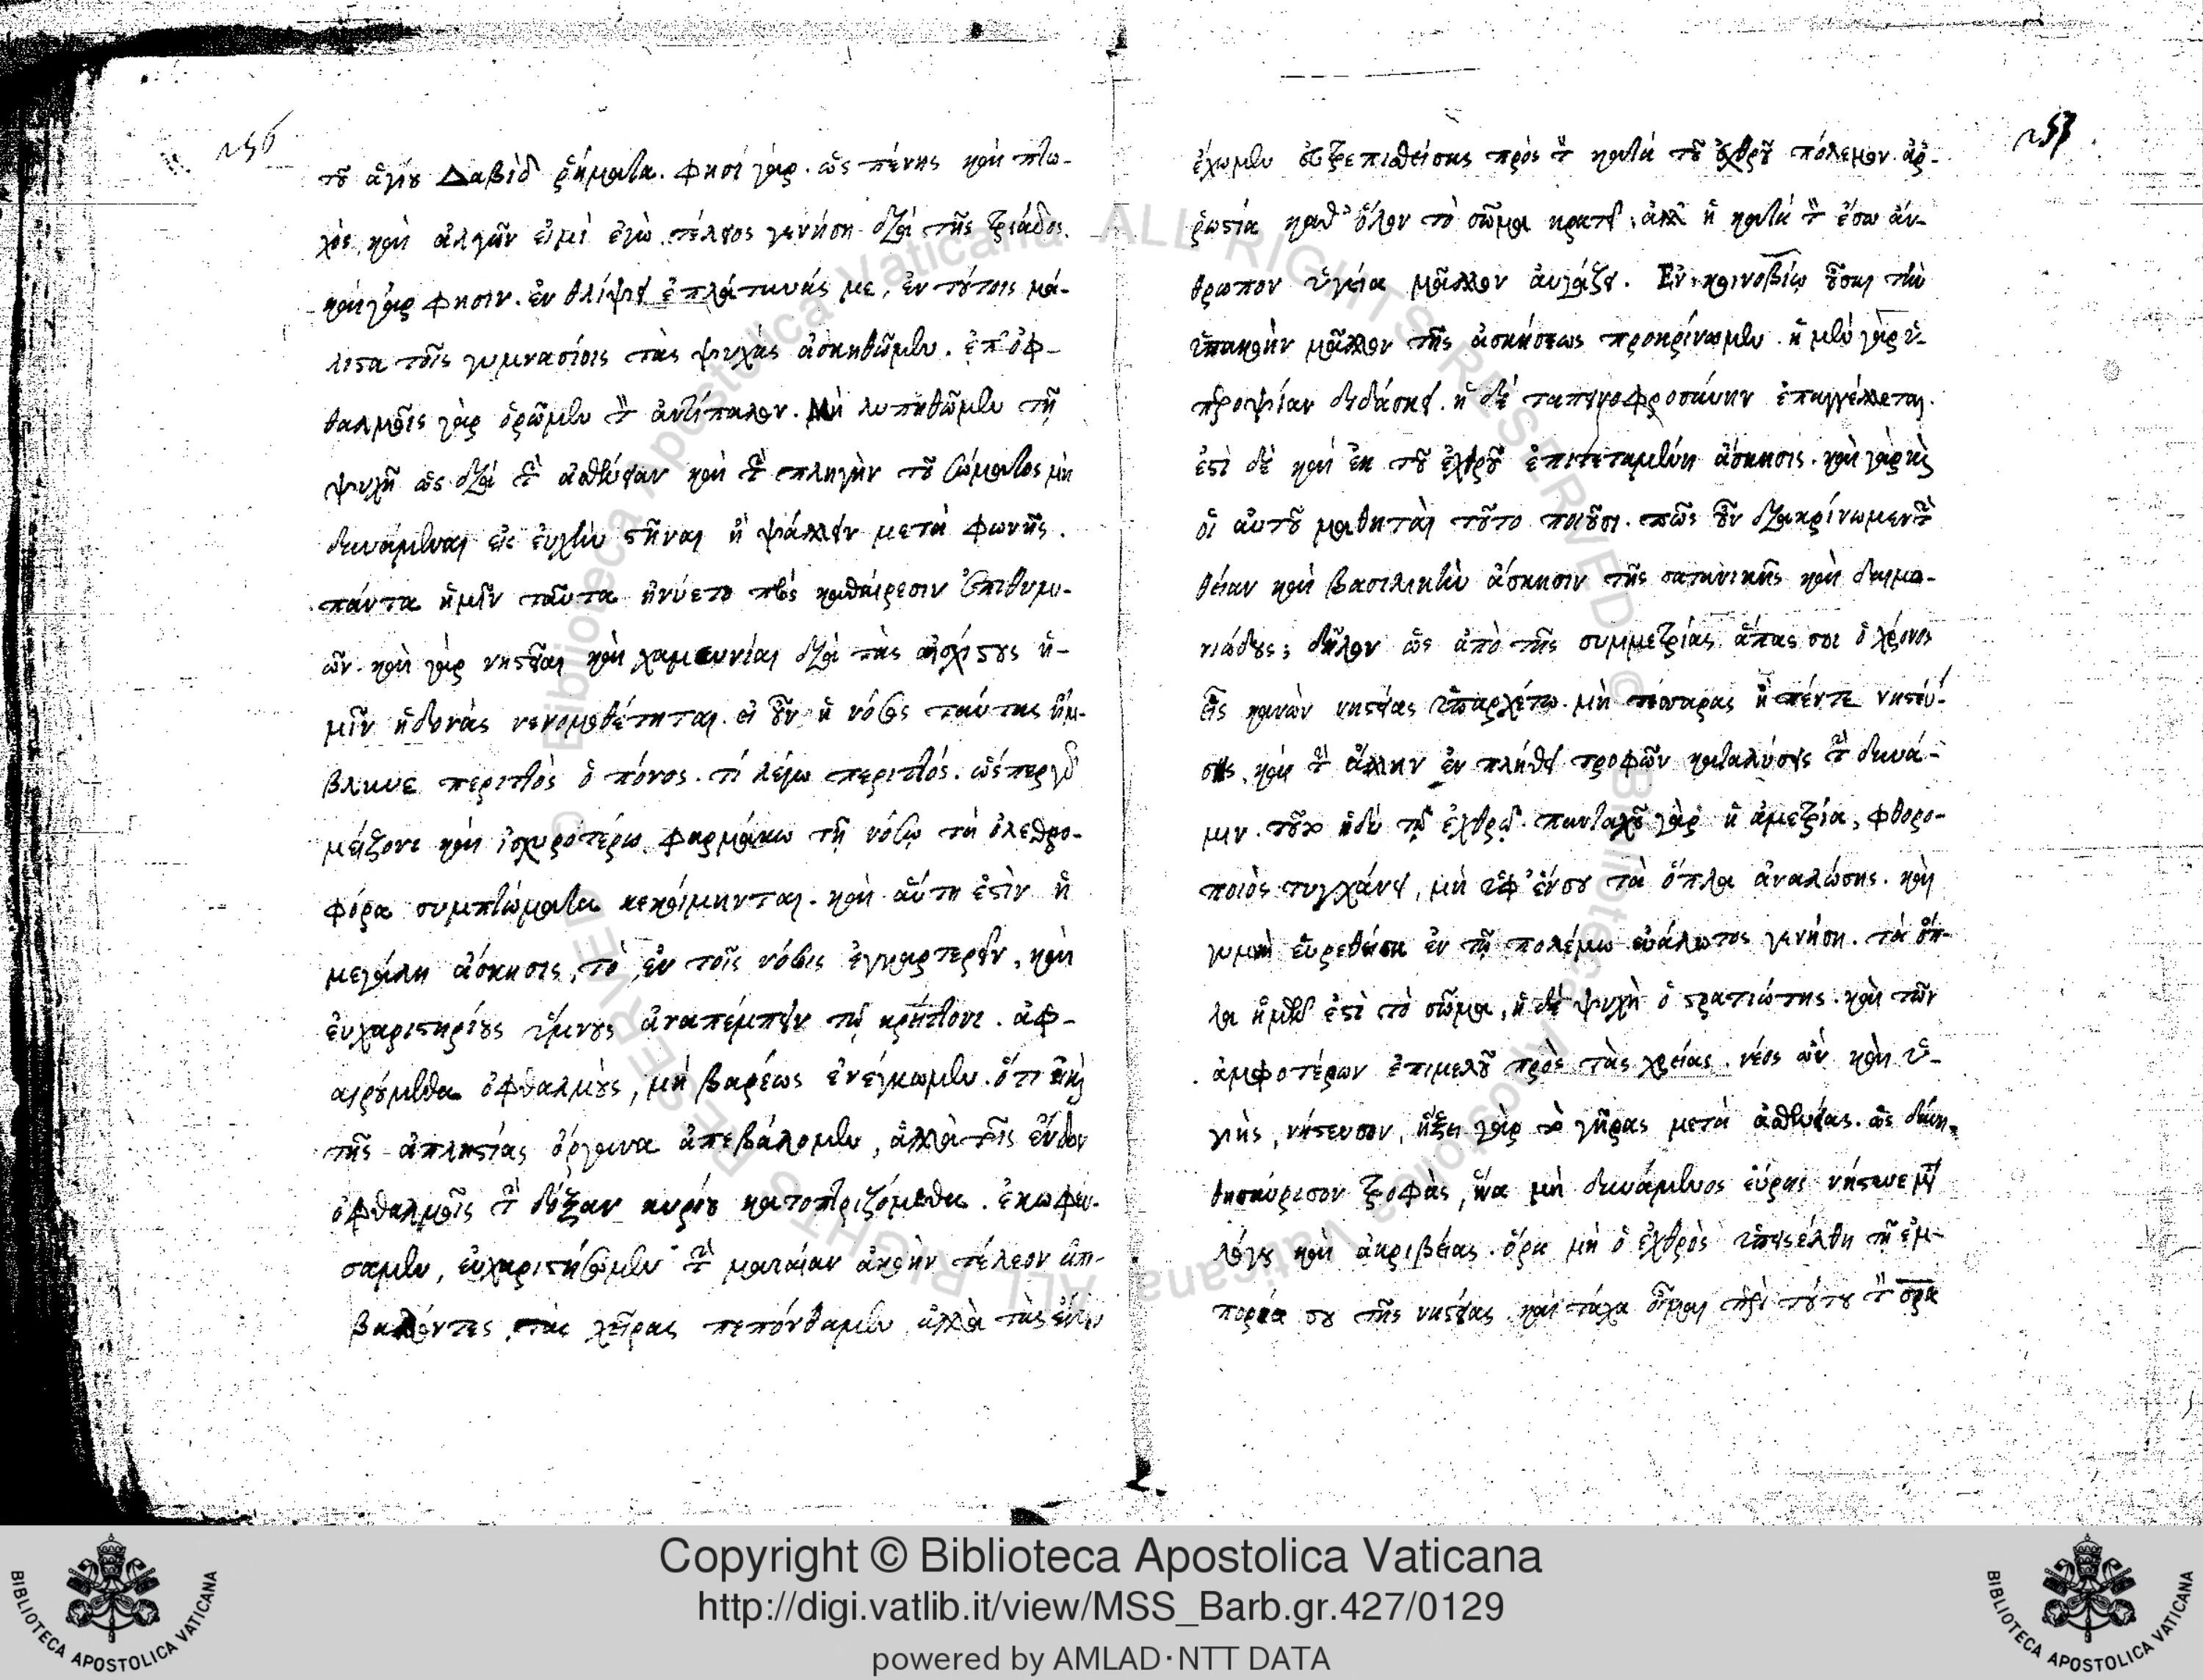 256
τοῦ ἁγίου Δαβὶδ ῥήματα. φησὶ γάρ. ὡς πένης καὶ πτω-
χὸς καὶ ἀλγῶν εἰμὶ ἐγὼ. τέλειος γενήσῃ διὰ τῆς τριάδος.
καὶ γάρ φησιν. ἐν θλίψει ἐπλάτυνάς με, ἐν τούτοις μά-
λιστα τοῖς γυμνασίοις τὰς ψυχὰς ἀσκηθῶμεν. ἐπ' ὀφ-
θαλμοῖς γὰρ ὁρῶμεν τὸν ἀντίπαλον. Μὴ λυπηθῶμεν τῇ
ψυχῇ ὡς διὰ τὴν ἀσθένειαν καὶ τὴν πληγὴν τοῦ σώματος μὴ
δυνάμεναι εἰς εὐχὴν στῆναι ἢ ψάλλειν μετὰ φωνῆς.
πάντα ἡμῖν ταῦτα ἠνύετο πρὸς καθαίρεσιν ἐπιθυμι-
ῶν. καὶ γὰρ νηστεῖαι καὶ χαμευνίαι διὰ τὰς αἰσχίστους ἡ-
μῖν ἡδονὰς νενομοθέτηται. εἰ οὖν ἡ νόσος ταύτας ἤμ-
βλυνε περιττὸς ὁ πόνος. τί λέγω περιττός. ὥσπερ γὰρ
μείζονι καὶ ἰσχυροτέρῳ φαρμάκῳ τῇ νόσῳ τὰ ὀλεθρο-
φόρα συμπτώματα κεκοίμηνται. καὶ αὕτη ἐστὶν ἡ
μεγάλη ἄσκησις, τὸ ἐν τοῖς νόσοις ἐγκαρτερεῖν, καὶ
εὐχαριστηρίους ὕμνους ἀναπέμπειν τῷ κρείττονι. ἀφ-
αιρούμεθα ὀφθαλμούς, μὴ βαρέως ἐνέγκωμεν. ὅτι καὶ
τῆς ἀπληστίας ὄργανα ἀπεβάλομεν, ἀλλὰ τοῖς ἔνδον
ὀφθαλμοῖς τὴν δόξαν κυρίου κατοπτριζόμεθα. ἐκωφεύ-
σαμεν, εὐχαριστήσωμεν τὴν ματαίαν ἀκοὴν τέλεον ἀπο-
βαλόντες. τὰς χεῖρας πεπόνθαμεν ἀλλὰ τὰς ἔνδον
257
ἔχωμεν εὐτρεπισθείσας πρὸς τὸν κατὰ τοῦ ἐχθροῦ πόλεμον. ἀρ-
ρωστία καθ' ὅλον τὸ σῶμα κρατεῖ. ἀλλ' ἡ κατὰ τὸν ἔσω ἄν-
θρωπον ὑγεία μᾶλλον αὐξάζει. Ἐν κοινοβίῳ οὖσαι τὴν
ὑπακοὴν μᾶλλον τῆς ἀσκήσεως προκρίνωμεν. ἡ μὲν γὰρ ὑ-
περοψίαν διδάσκει. ἡ δὲ ταπεινοφροσύνην ἐπαγγέλλεται.
ἔστι δὲ καὶ ἐκ τοῦ ἐχθροῦ ἐπιτεταμένη ἄσκησις. καὶ γὰρ καὶ
οἱ αὐτοῦ μαθηταὶ τοῦτο ποιοῦσι. πῶς οὖν διακρίνωμεν τὴν
θείαν καὶ βασιλικὴν ἄσκησιν τῆς σατανικῆς καὶ δαιμο-
νιώδους; δῆλον ὡς ἀπὸ τῆς συμμετρίας. ἅπας σοι ὁ χρόνος
εἷς κανὼν νηστείας ὑπαρχέτω. μὴ τέσσαρας ἢ πέντε νηστεύ-
σῃς, καὶ τὴν ἄλλην ἐν πλήθει τροφῶν καταλύσῃς τὴν δύνα-
μιν. τοῦτο ἡδὺ τῷ ἐχθρῷ. πανταχοῦ γὰρ ἡ ἀμετρία, φθορο-
ποιὸς τυγχάνει, μὴ ὑφ' ἕν σου τὰ ὅπλα ἀναλώσῃς. καὶ
γυμνὴ εὑρεθεῖσα ἐν τῷ πολέμῳ εὐάλωτος γενήσῃ. τὰ ὅπ-
λα ἡμῶν ἐστὶ τὸ σῶμα, ἡ δὲ ψυχὴ ὁ στρατιώτης. καὶ τῶν
ἀμφοτέρων ἐπιμελοῦ πρὸς τὰς χρείας. νέος ὢν καὶ ὑ-
γιής, νήστευσον, ἥξει γὰρ τὸ γῆρας μετὰ ἀσθενείας. ὡς δύνῃ
θησαύρισον τροφὰς, ἵνα μὴ δυνάμενος εὕρῃς νήστευε μετὰ
λόγου καὶ ἀκριβείας. ὅρα μὴ ὁ ἐχθρὸς ὑπεισέλθῃ τῇ ἐμ-
πορία σου τῆς νηστείας. καὶ τάχα οἶμαι περὶ τούτου τὸν σρα
Copyright © Biblioteca Apostolica Vaticana
http://digi.vatlib.it/view/MSS_Barb.gr.427/0129
powered by AMLAD·NTT DATA
BIBLIOTECA APOSTOLICA VATICANA
BIBLIOTECA APOSTOLICA VATICANA